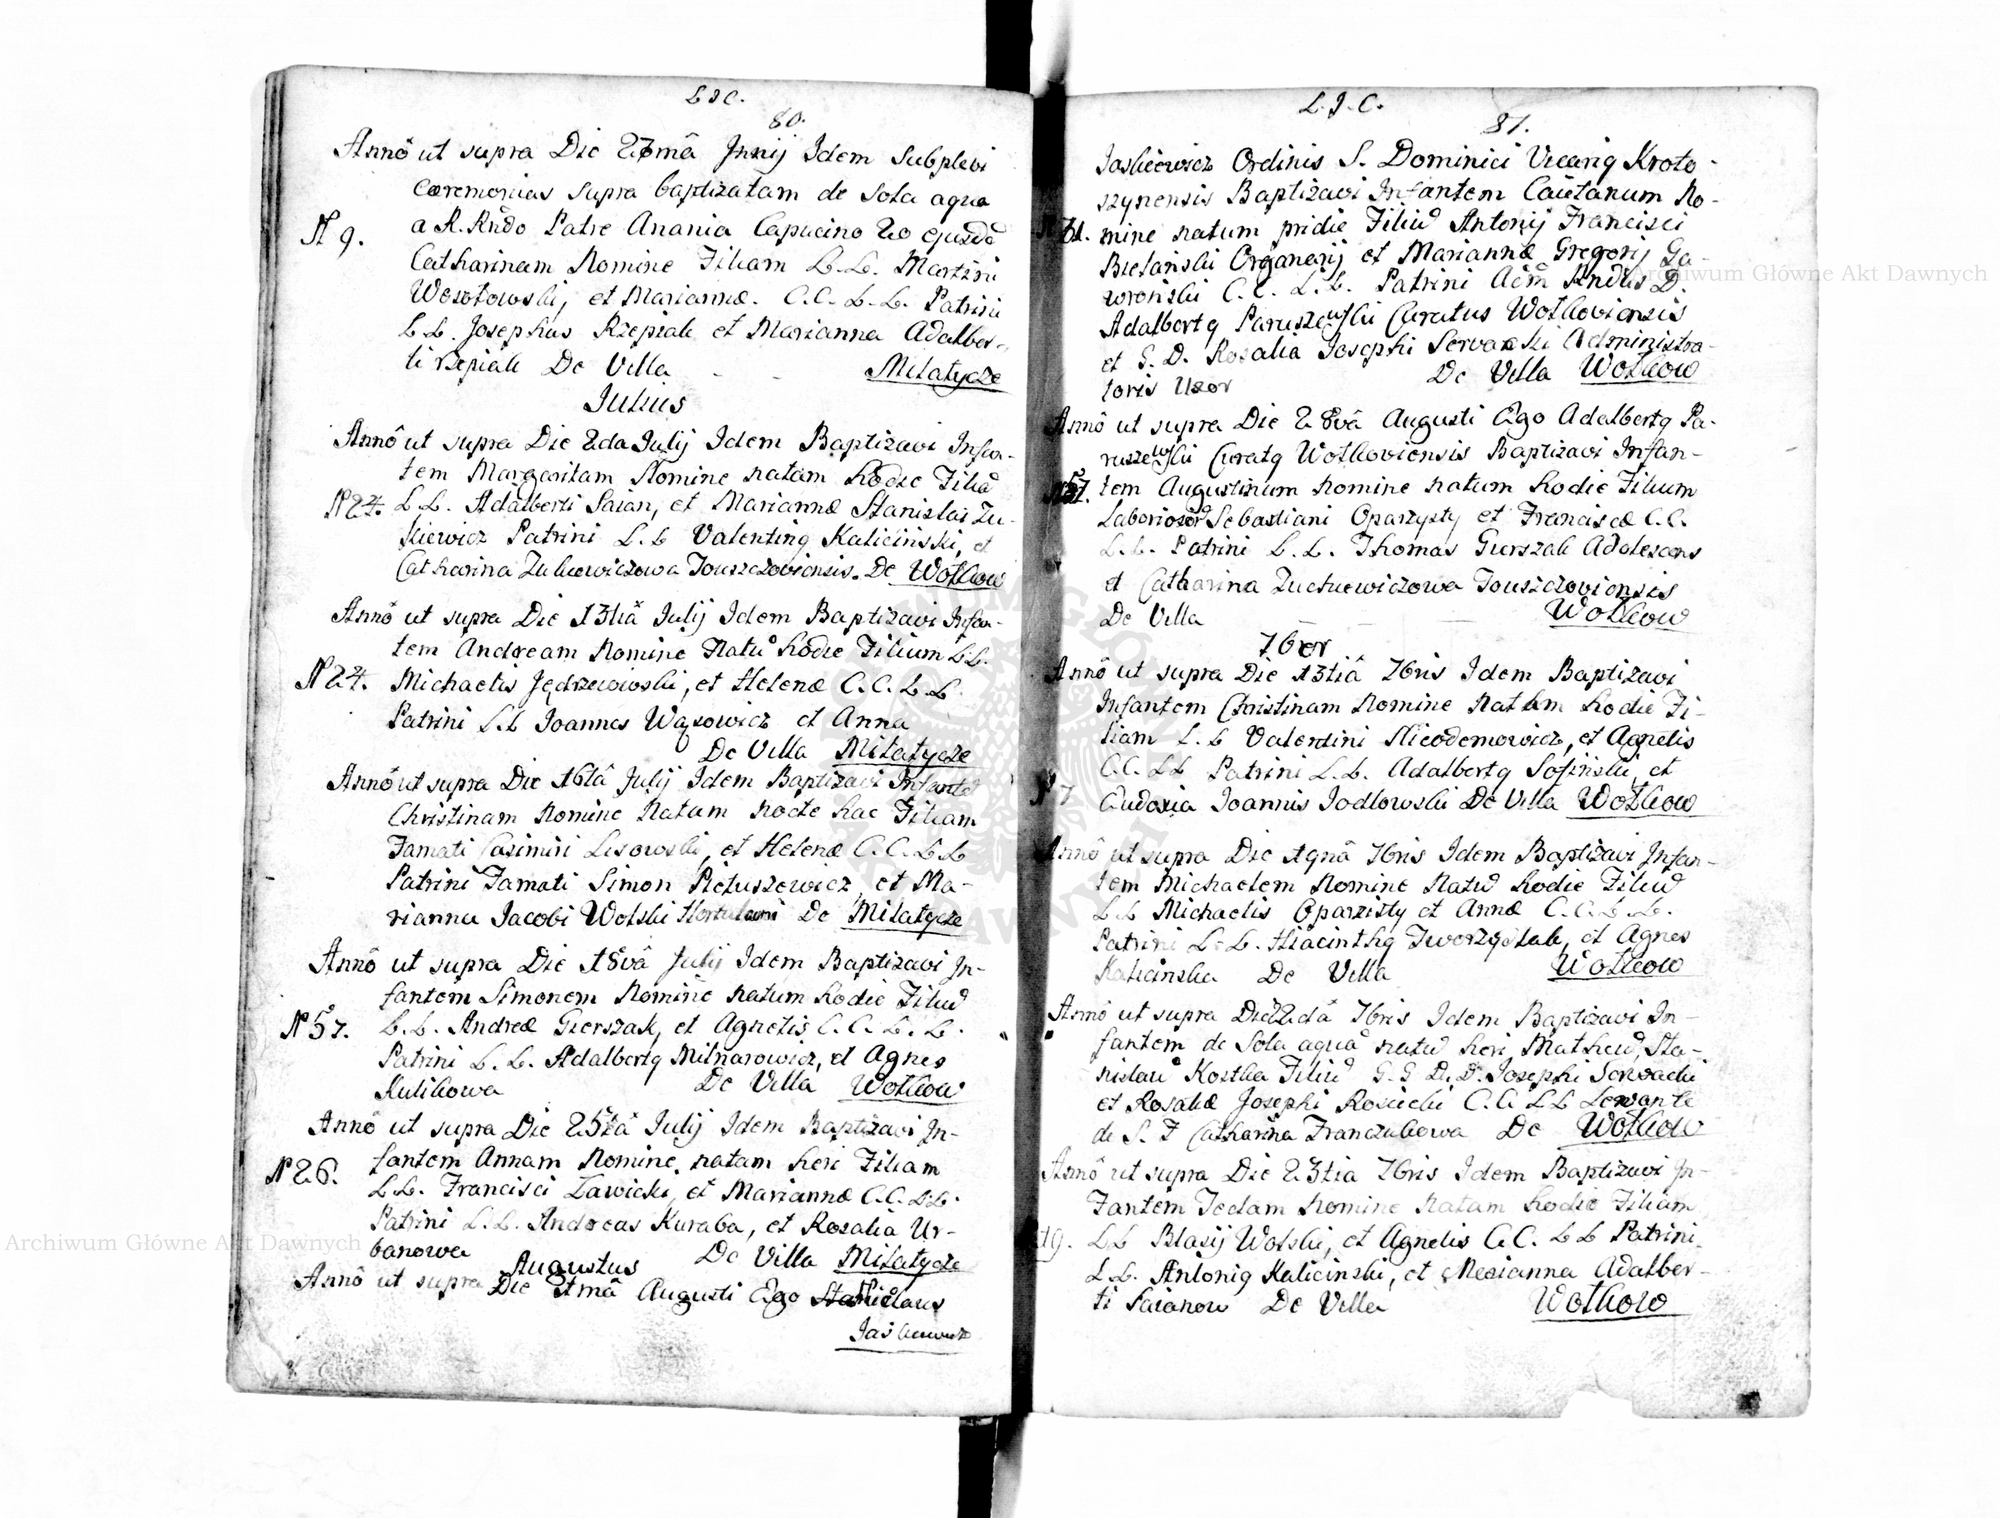 L I C.
80.
Annô ut supra Die 27mâ Junij Idem Suplevi
Cæremonias supra baptizatam de Sola aqua
N 9. a R. Rndo Patre Anania Capucino 20 ejusdē
Catharinam Nomine Filiam L.L. Martini
Wesołowskij et Mariannæ. C.C. L.L. Patrini
L L. Josephus Rzepiak et Marianna Adalber-
ti Rzepiak De Villa - - Miłatycze
Julius
Annô ut supra Die 2da Julij Idem Baptizavi Infan-
tem Margaritam Nomine natam hodie Filiā
N 24. L L. Adalberti Saian, et Mariannæ Stanislai Zu-
kiewicz Patrini L. L Valentinq Kaliciński, et
Catharina Zukiewiczowa Touszczoviensis. De Wołkow
Annô ut supra Die 13tiâ Julij Idem Baptizavi Infan-
tem Andream Nomine Natū hodie Filium L.L.
N 24. Michaelis Jędrzeiowski, et Helenæ C. C. L L.
Patrini L L Joannes Wąsowicz et Anna
De Villa Miłatycze
Annô ut supra Die 16tâ Julij Idem Baptizavi Infantē
Christinam Nomine Natam nocte hac Filiam
Famati Casimiri Lisowski, et Helenæ C. C. L L
Patrini Famati Simon Pietuszewicz, et Ma-
rianna Jacobi Wolski Hortulani De Miłatycze
Annô ut supra Die 18vâ Julij Idem Baptizavi In-
fantem Simonem Nomine natum hodie Filiū
N 57. L. L. Andreæ Gierszak, et Agnetis C. C. L. L.
Patrini L. L. Adalbertq Milnarowicz, et Agnes
Kulikowa De Villa Wołkow
Annô ut supra Die 25tâ Julij Idem Baptizavi In-
N 26. fantem Annam Nomine natam heri Filiam
L L. Francisci Zawicki, et Mariannæ C. C. L L.
Patrini L. L. Andreas Kuraba, et Rosalia Ur-
banowa De Villa Miłatycze
Augustus
Annô ut supra Die 8tmâ Augusti Ego Stanislaus
Jaskiewicz
L. I. C.
81.
Jaskiewicz Ordinis S. Dominici Vicariq Kroto-
szynensis Baptizavi Infantem Caietanum No-
71. mine natum pridie Filiū Antonij Francisci
Bielański Organarij et Mariannæ Gregorij Ga-
wroński C. C. L. L. Patrini Adm Rndus D.
Adalbertq Paruszewski Curatus Wołkoviensis
et G. D. Rosalia Josephi Servacki Administra-
toris Uxor De Villa Wołkow
Annô ut supra Die 28vâ Augusti Ego Adalbertq Pa-
ruszewski Curatq Wołkoviensis Baptizavi Infan-
57. tem Augustinum nomine natum hodie Filium
Laboriosorū Sebastiani Oparzysty et Franciscæ C. C.
L. L. Patrini L. L. Thomas Gierszak Adolescens
et Catharina Zuchiewiczowa Touszczoviensis
De Villa Wołkow
7ber
Annô ut supra Die 13tiâ 7bris Idem Baptizavi
Infantem Christinam nomine Natam hodie Fi-
liam L. L Valentini Nicodemowicz, et Agnetis
C.C. L L Patrini L. L. Adalbertq Sosiński, et
N 7 Eudoxia Joannis Jodlowski De Villa Wołkow
Annô ut supra Die 19nâ 7bris Idem Baptizavi Infan-
tem Michaelem Nomine Natū hodie Filiū
L L Michaelis Oparzisty et Annæ C. C. L. L.
Patrini L. L. Hiacinthq Tworzystak, et Agnes
Kalicinska De Villa Wołkow
Annô ut supra Die 22dâ 7bris Idem Baptizavi In-
fantem de Sola aqua natū heri Matheū, Sta-
nislaū Kostka Filiū G. G D. D. Josephi Servacki
et Rosaliæ Josephi Rosicki C. C. L L Levante
de S. F Catharina Franczukowa De Wołkow
Annô ut supra Die 23tia 7bris Idem Baptizavi In-
fantem Teclam nomine natam hodie Filiam
19. L L Blasij Wolski, et Agnetis C. C. L L Patrini
L L. Antoniq Kaliciński, et Marianna Adalber-
ti Saianow De Villa Wołkow
Archiwum Główne Akt Dawnych
Archiwum Główne Akt Dawnych